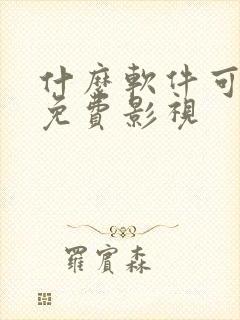 什麼軟件可
免費影視
羅賓森